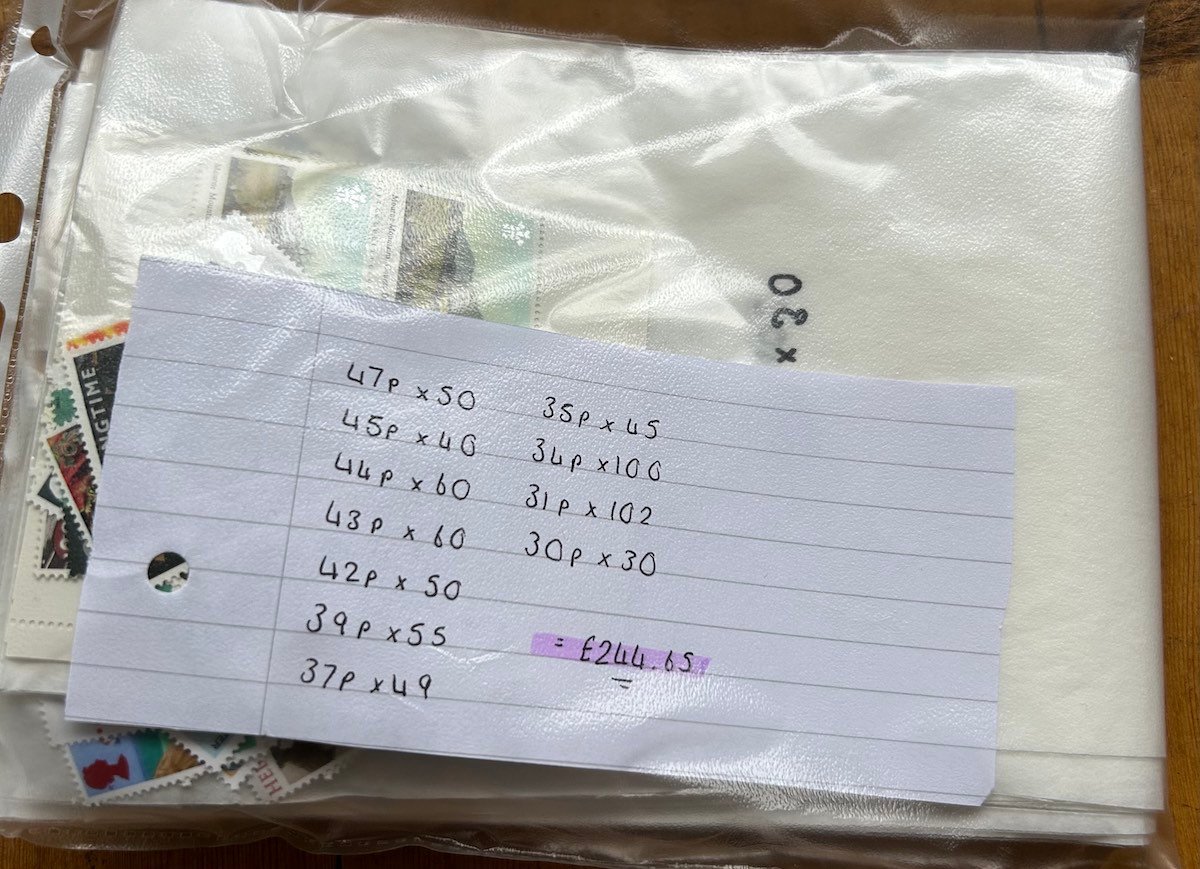 x 30
47p x 50
45p x 40
44p x 60
43p x 60
42p x 50
39p x 55
37p x 49
35p x 45
34p x 100
31p x 102
30p x 30
= £244.65
NGTIME